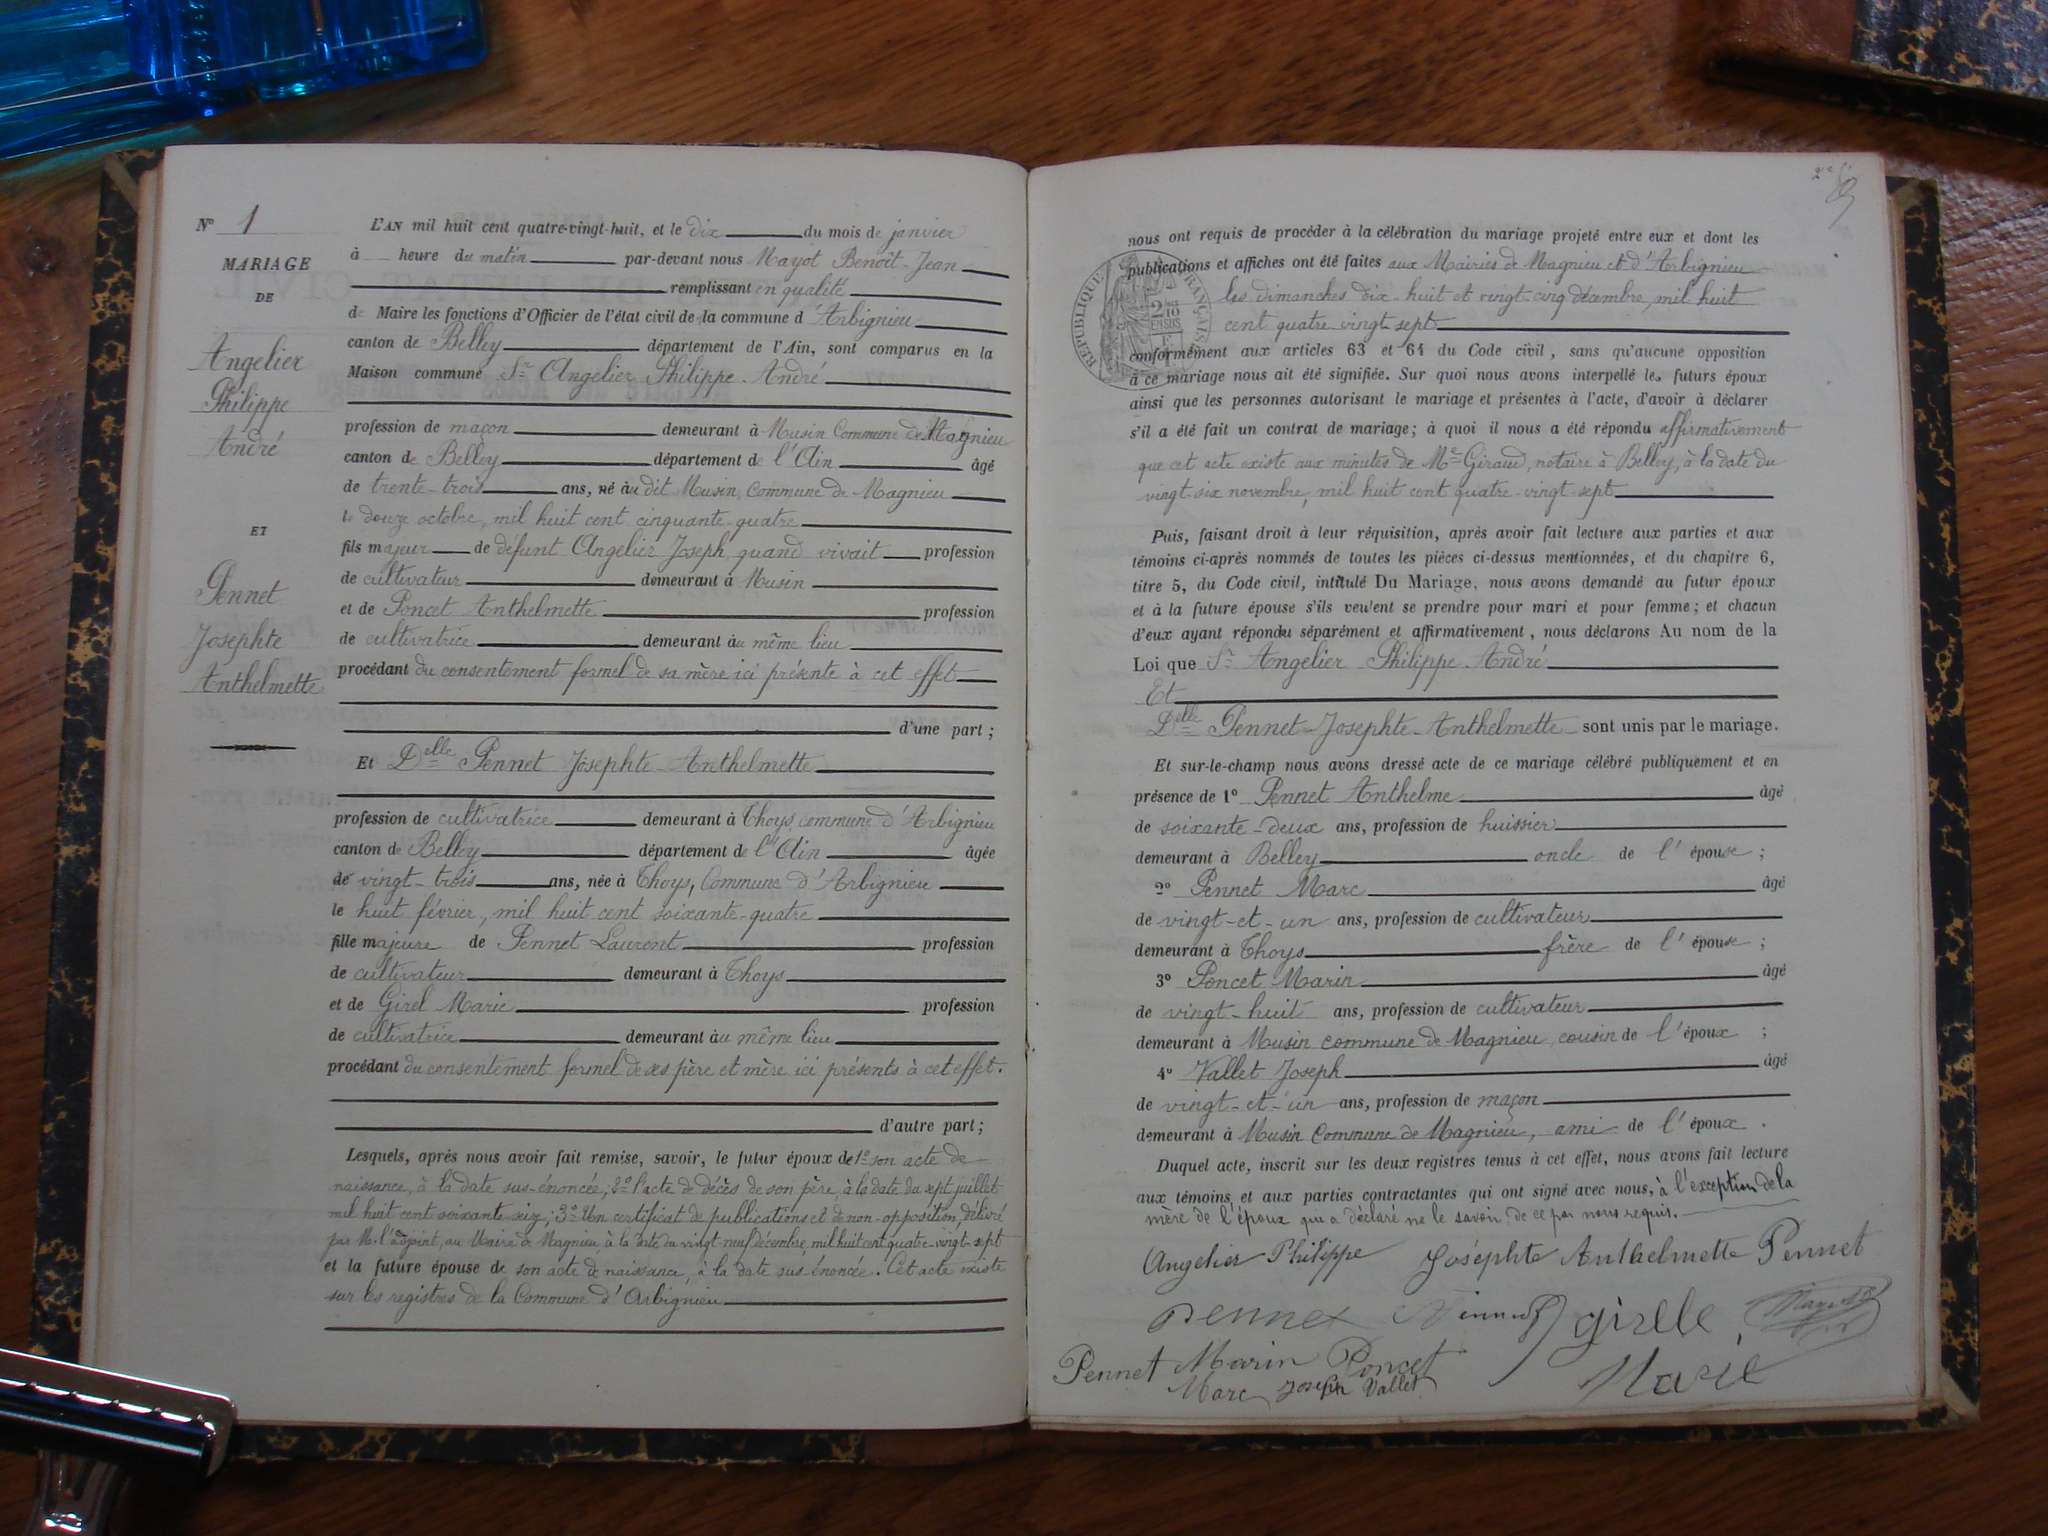 N° 1
MARIAGE
DE
Angelier
Philippe
André
ET
Pennet
Josephte
Anthelmette
L'AN mil huit cent quatre-vingt-huit, et le dix du mois de janvier
à heure du matin par-devant nous Mayot Benoît-Jean
remplissant en qualité
de Maire les fonctions d'Officier de l'état civil de la commune d'Arbignieu
canton de Belley département de l'Ain, sont comparus en la
Maison commune Sr Angelier Philippe-André
profession de maçon demeurant à Musin Commune de Magnieu
canton de Belley département de l'Ain âgé
de trente-trois ans, né au dit Musin, Commune de Magnieu
le douze octobre, mil huit cent cinquante-quatre
fils majeur de défunt Angelier Joseph, quand vivait profession
de cultivateur demeurant à Musin
et de Poncet Anthelmette profession
de cultivatrice demeurant au même lieu
procédant du consentement formel de sa mère ici présente à cet effet
d'une part ;
Et Delle Pennet Josephte-Anthelmette
profession de cultivatrice demeurant à Thoys, commune d'Arbignieu
canton de Belley département de l'Ain âgée
de vingt-trois ans, née à Thoys, Commune d'Arbignieu
le huit février, mil huit cent soixante-quatre
fille majeure de Pennet Laurent profession
de cultivateur demeurant à Thoys
et de Girel Marie profession
de cultivatrice demeurant au même lieu
procédant du consentement formel de ses père et mère ici présents à cet effet.
d'autre part ;
Lesquels, après nous avoir fait remise, savoir, le futur époux de 1° son acte de
naissance, à la date sus-énoncée ; 2° l'acte de décès de son père, à la date du sept juillet
mil huit cent soixante-six ; 3° Un certificat de publications et de non-opposition, délivré
par M. l'adjoint, au Maire de Magnieu, à la date du vingt-neuf décembre, mil huit cent quatre-vingt-sept
et la future épouse de son acte de naissance, à la date sus-énoncée. Cet acte existe
sur les registres de la Commune d'Arbignieu
nous ont requis de procéder à la célébration du mariage projeté entre eux et dont les
publications et affiches ont été faites aux Mairies de Magnieu et d'Arbignieu
les dimanches dix-huit et vingt-cinq décembre, mil huit
cent quatre-vingt-sept
RÉPUBLIQUE FRANÇAISE
conformément aux articles 63 et 64 du Code civil, sans qu'aucune opposition
à ce mariage nous ait été signifiée. Sur quoi nous avons interpellé les futurs époux
ainsi que les personnes autorisant le mariage et présentes à l'acte, d'avoir à déclarer
s'il a été fait un contrat de mariage ; à quoi il nous a été répondu affirmativement
que cet acte existe aux minutes de Me Giraud, notaire à Belley, à la date du
vingt-six novembre, mil huit cent quatre-vingt-sept
Puis, faisant droit à leur réquisition, après avoir fait lecture aux parties et aux
témoins ci-après nommés de toutes les pièces ci-dessus mentionnées, et du chapitre 6,
titre 5, du Code civil, intitulé Du Mariage, nous avons demandé au futur époux
et à la future épouse s'ils veulent se prendre pour mari et pour femme ; et chacun
d'eux ayant répondu séparément et affirmativement, nous déclarons Au nom de la
Loi que Sr Angelier Philippe-André
Et
Delle Pennet-Josephte-Anthelmette sont unis par le mariage.
Et sur-le-champ nous avons dressé acte de ce mariage célébré publiquement et en
présence de 1° Pennet Anthelme âgé
de soixante-deux ans, profession de huissier
demeurant à Belley oncle de l'épouse ;
2° Pennet Marc âgé
de vingt-et-un ans, profession de cultivateur
demeurant à Thoys frère de l'épouse ;
3° Poncet Marin âgé
de vingt-huit ans, profession de cultivateur
demeurant à Musin commune de Magnieu, cousin de l'époux ;
4° Vallet Joseph âgé
de vingt-et-un ans, profession de maçon
demeurant à Musin Commune de Magnieu, ami de l'époux.
Duquel acte, inscrit sur les deux registres tenus à cet effet, nous avons fait lecture
aux témoins et aux parties contractantes qui ont signé avec nous, à l'exception de la
mère de l'époux qui a déclaré ne le savoir, de ce par nous requis.
Angelier Philippe Joséphte Anthelmette Pennet
Pennet girelle
Pennet Marin Poncet Marie
Marc Joseph Vallet